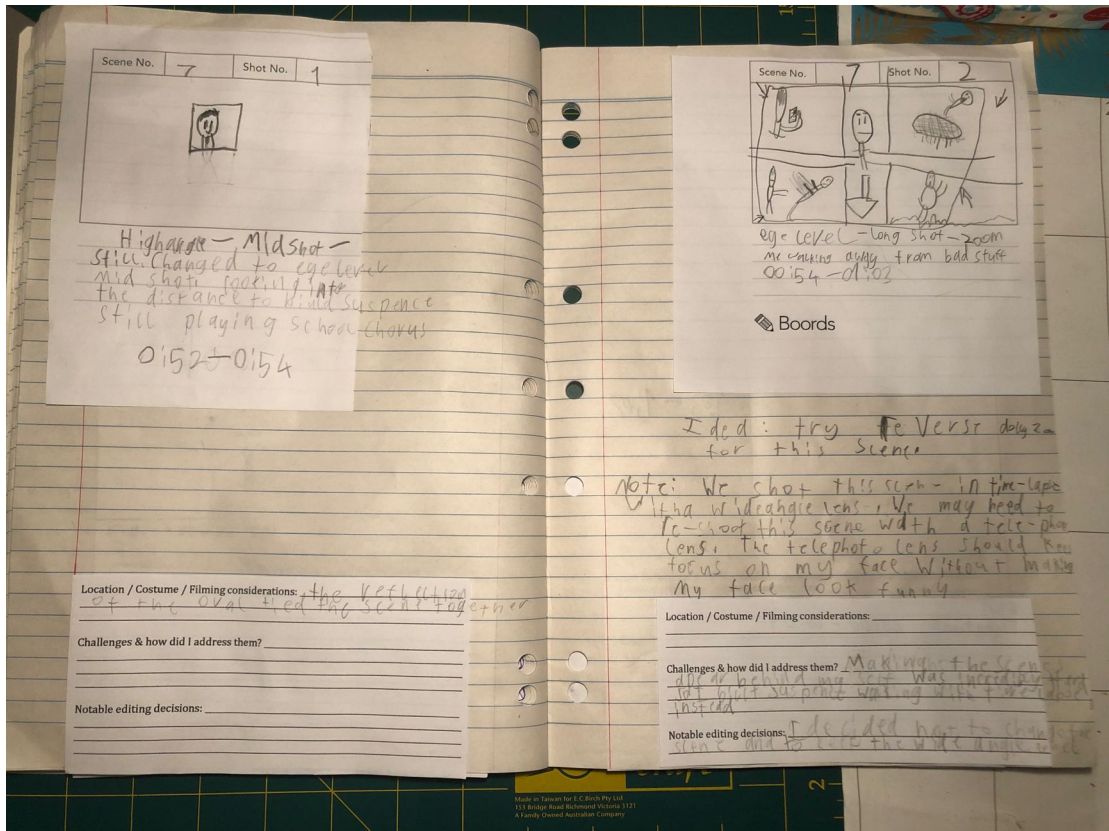 Scene No. 7 Shot No. 1
High angle - Mid shot -
still. Changed to ege level
mid shot, looking into
the distance to build suspence
still playing school chorus
0:52-0:54
Location / Costume / Filming considerations: the reflection
of the oval tied the scene together
Challenges & how did I address them?
Notable editing decisions:
Scene No. 7 Shot No. 2
ege level - long shot - zoom
me walking away from bad stuff
00:54-01:03
Boords
Idea: try reverse dolly
for this scene.
Note: We shot this in time-lapse
with a wideangle lens, We may need to
re-shoot this scene with a tele-photo
lens. The telephoto lens should keep
focus on my face without making
my face look funny
Location / Costume / Filming considerations:
Challenges & how did I address them? Making the scene
behind my self was
suspense walking
instead
Notable editing decisions: I decided not to
scene and to the wide angle
Made in Taiwan for E.C.Birch Pty Ltd
153 Bridge Road Richmond Victoria 3121
A Family Owned Australian Company
2